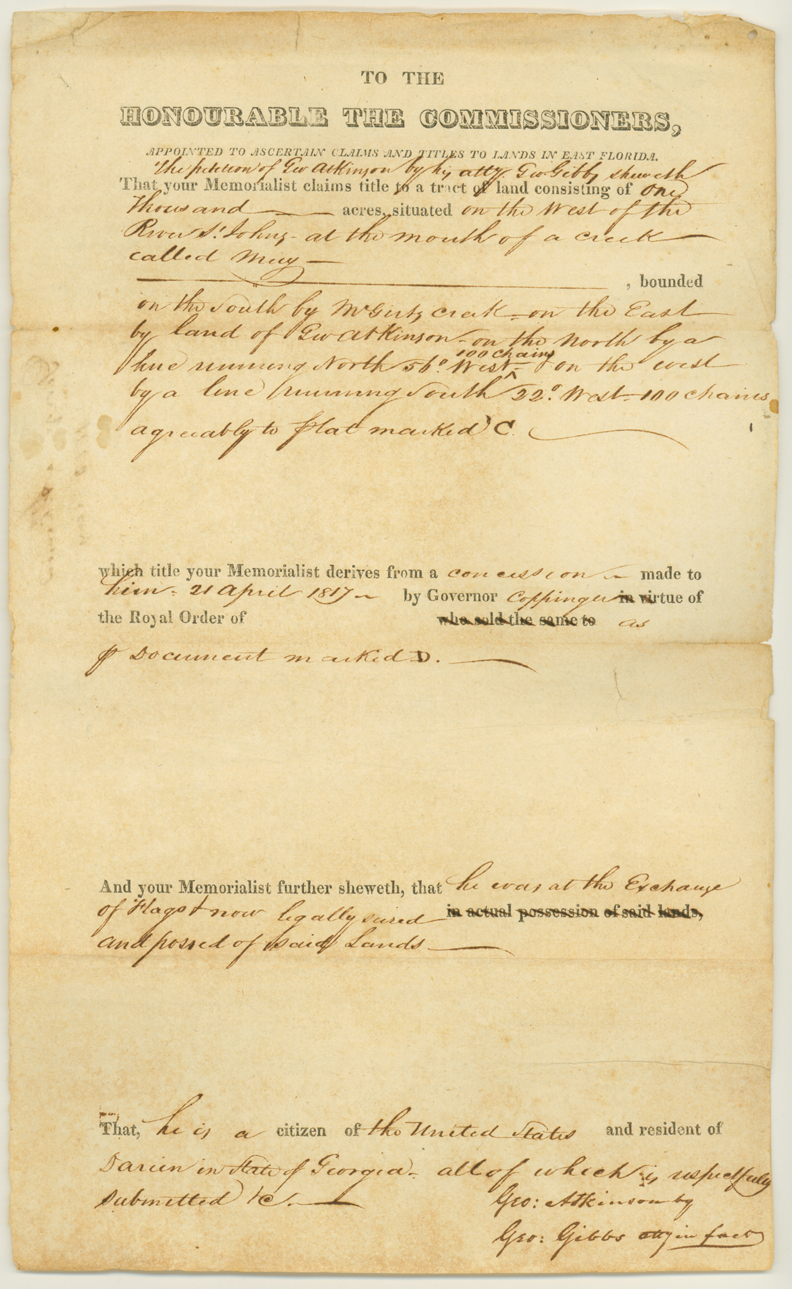 TO THE
HONOURABLE THE COMMISSIONERS,
APPOINTED TO ASCERTAIN CLAIMS AND TITLES TO LANDS IN EAST FLORIDA.
The petition of Geo Atkinson by his atty Geo Gibbs sheweth
That your Memorialist claims title to a tract of land consisting of One
thousand acres, situated on the West of the
River St. Johns - at the mouth of a creek
called
, bounded
on the South by McGirts creek - on the East
by land of Geo Atkinson - on the North by a
100 chains
line running North 56° West - on the west
by a line running South 22° West - 100 chains
agreeably to plat marked C.
which title your Memorialist derives from a concession made to
him - 21 April 1817 - by Governor Coppinger in virtue of
the Royal Order of who sold the same to as
pr Document marked D.
And your Memorialist further sheweth, that he was at the Exchange
of Flags & now legally seized in actual possession of said lands,
and possed of said Lands
That, he is a citizen of the United States and resident of
Darien in State of Georgia - all of which is respectfully
Submitted &c.
Geo: Atkinson by
Geo: Gibbs atty in fact